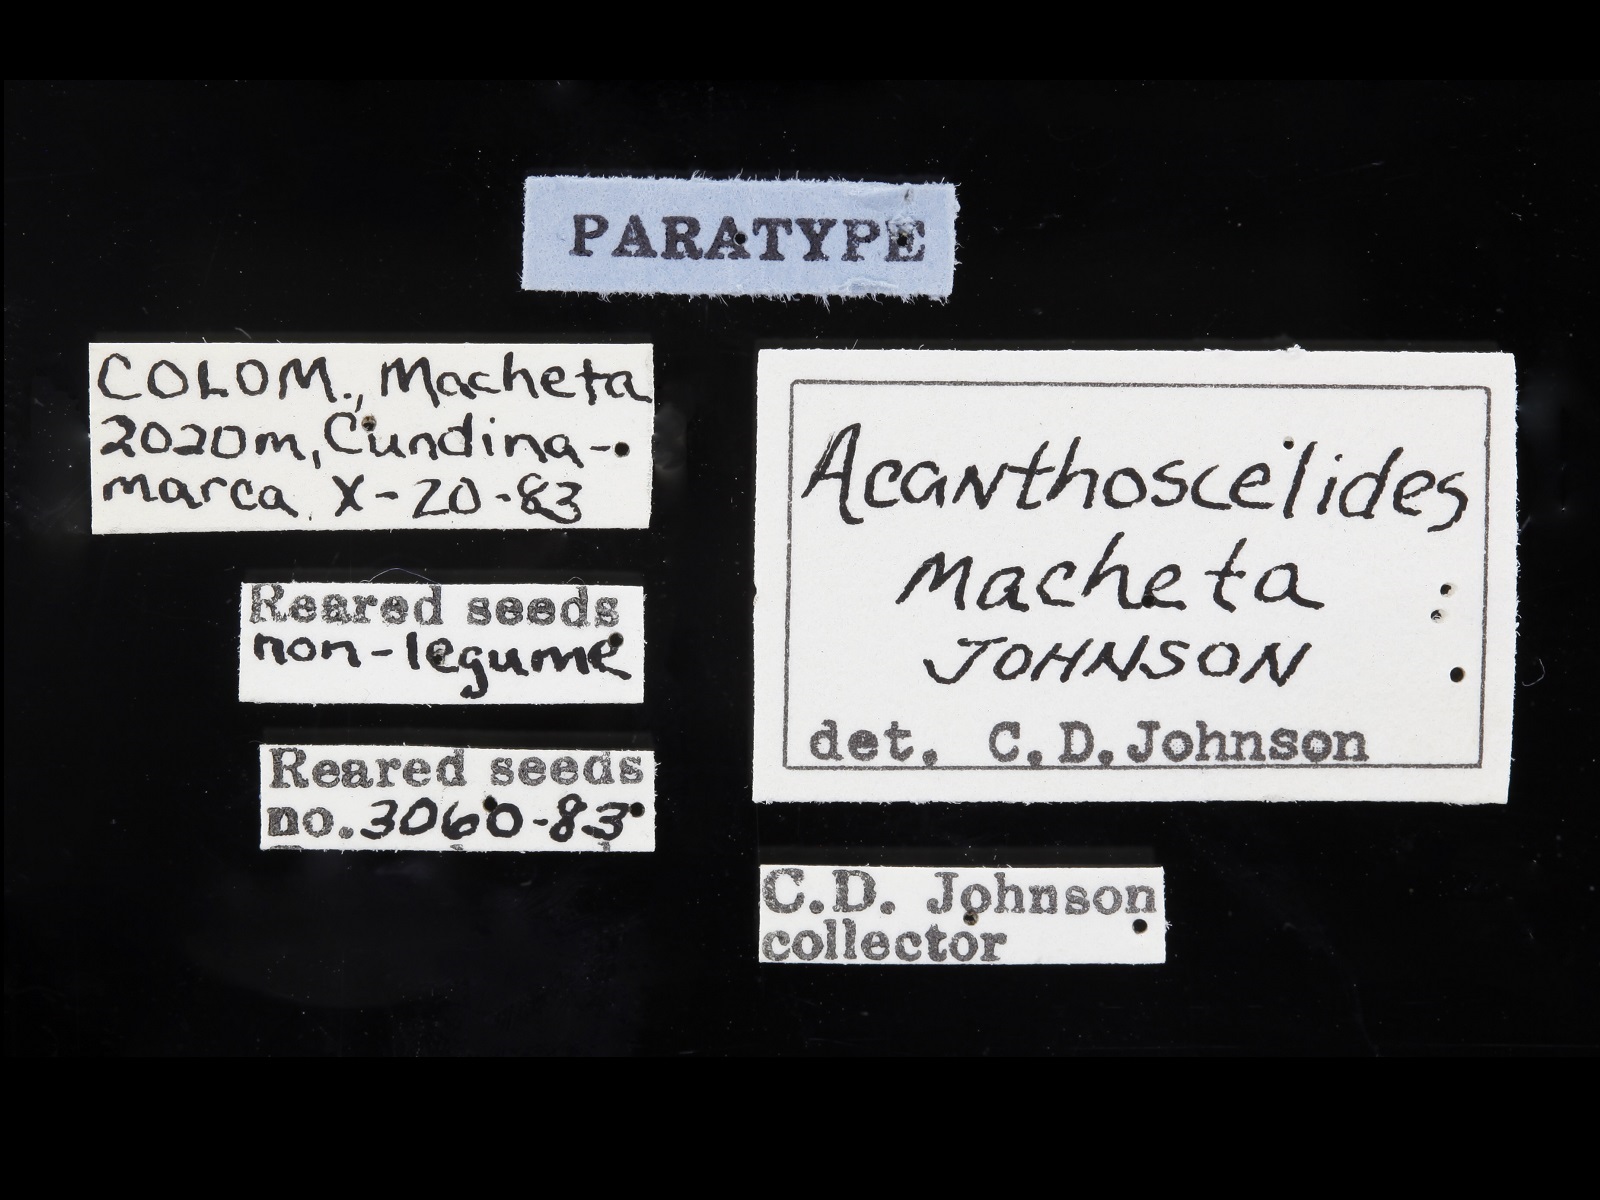 PARATYPE
COLOM., Macheta
2020m, Cundina-
marca X-20-83
Reared seeds
non-legume
Reared seeds
no. 3060-83
Acanthoscelides
macheta
JOHNSON
det. C.D. Johnson
C.D. Johnson
collector